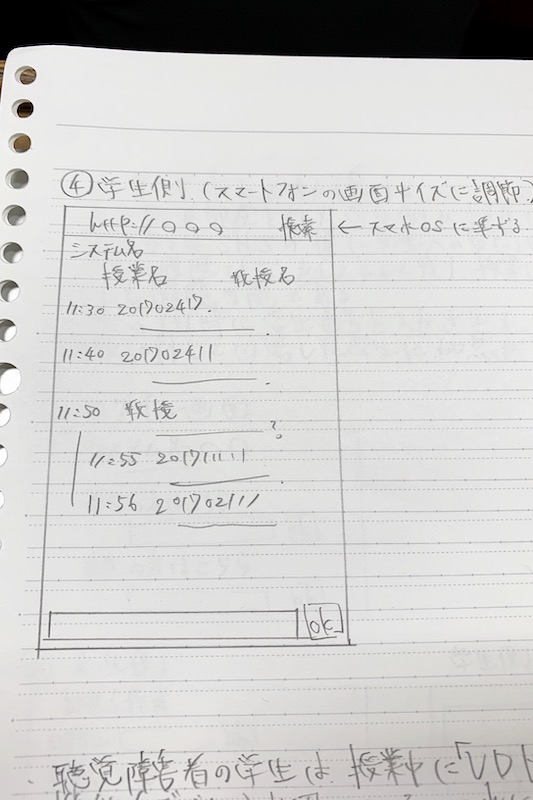 ④ 学生側 (スマートフォンの画面サイズに調節)
http://○○○ 検索 ← スマホOSに準ずる
システム名
授業名 教授名
11:30 20170241?.
11:40 201702411
11:50 教授 ?
11:55 201711111
11:56 201702111
ok
・聴覚障害者の学生は 授業中に「UD